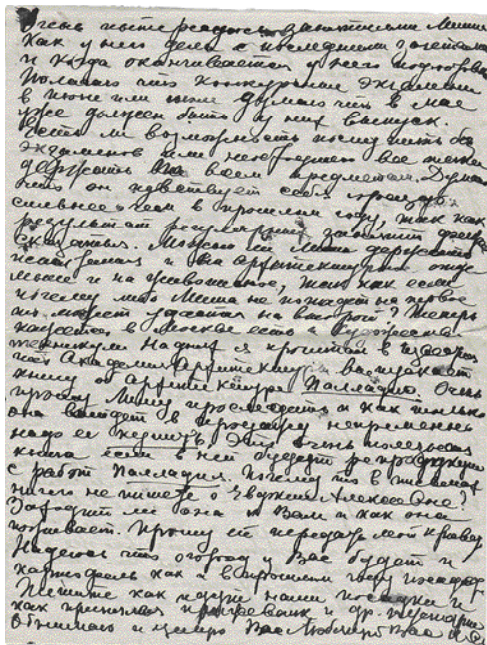 Очень интересуюсь занятиями Миши
Как у него дела с последними зачетами
и когда оканчивается у него подготовка
Полагаю что конкурсные экзамены
в июне или июле думаю что в мае
уже должен быть у них выпуск.
Есть ли возможность поступить без
экзаменов или необходимо все таки
держать по всем предметам. Думаю
что он чувствует себя гораздо
сильнее чем в прошлом году, так как
результат регулярных занятий должен
сказаться. Можно ли Мише держать
экзамены и на архитектурное отде
и на живописное, так как если
почему либо Миша не попадет на первое
то может удастся на второй? Теперь
кажется в Москве есть и художеств
техникум. На днях я прочитал в Известиях
что Академия Архитектуры выпускает
книгу о архитекторе Палладио. Очень
прошу Мишу проследить и как только
она выйдет в продажу непременно
надо ее купить. Это очень полезная
книга если в ней будут репродукции
с работ Палладио. Почему ты в письмах
ничего не пишешь о Евгении Алексеевне?
Заходит ли она к Вам и как она
поживает. Прошу ей передать мой привет
Надеюсь что огород у Вас будет и
картофель как и в прошлом году посадите
Пишите как идут наши посадки и
как принялся и др.
Обнимаю и целую Вас Любящий Вас